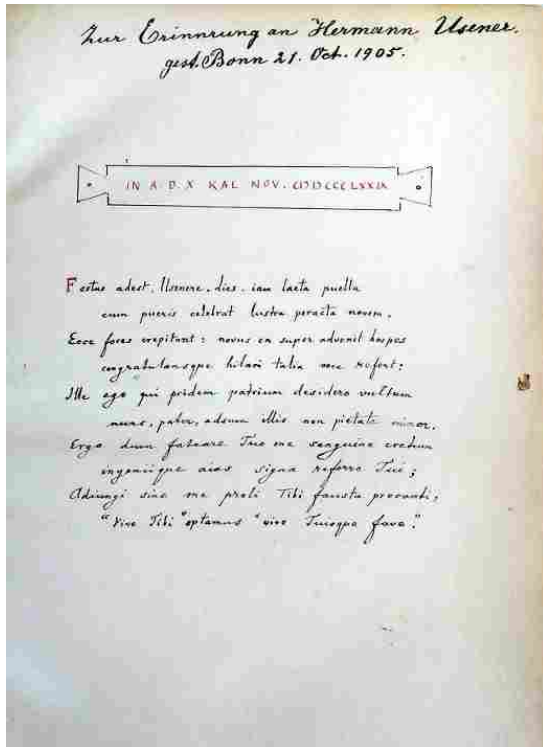 Zur Erinnrung an Hermann Usener.
gest. Bonn 21. Oct. 1905.
IN A. D. X KAL NOV. CIↃDCCCLXXIX
Festus adest, Usenere, dies, iam laeta puella
cum pueris celebrat lustra peracta novem.
Ecce fores crepitant: novus en super advenit hospes
congratulansque hilari talia voce refert:
Ille ego qui pridem patrium desidero vultum
nunc, pater, adsum illis non pietate minor.
Ergo dum fateare Tuo me sanguine cretum
ingeniique aias signa referre Tui;
Adiungi sine me proli Tibi fausta precanti;
"Vive Tibi" optamus "vive Tuisque fave."